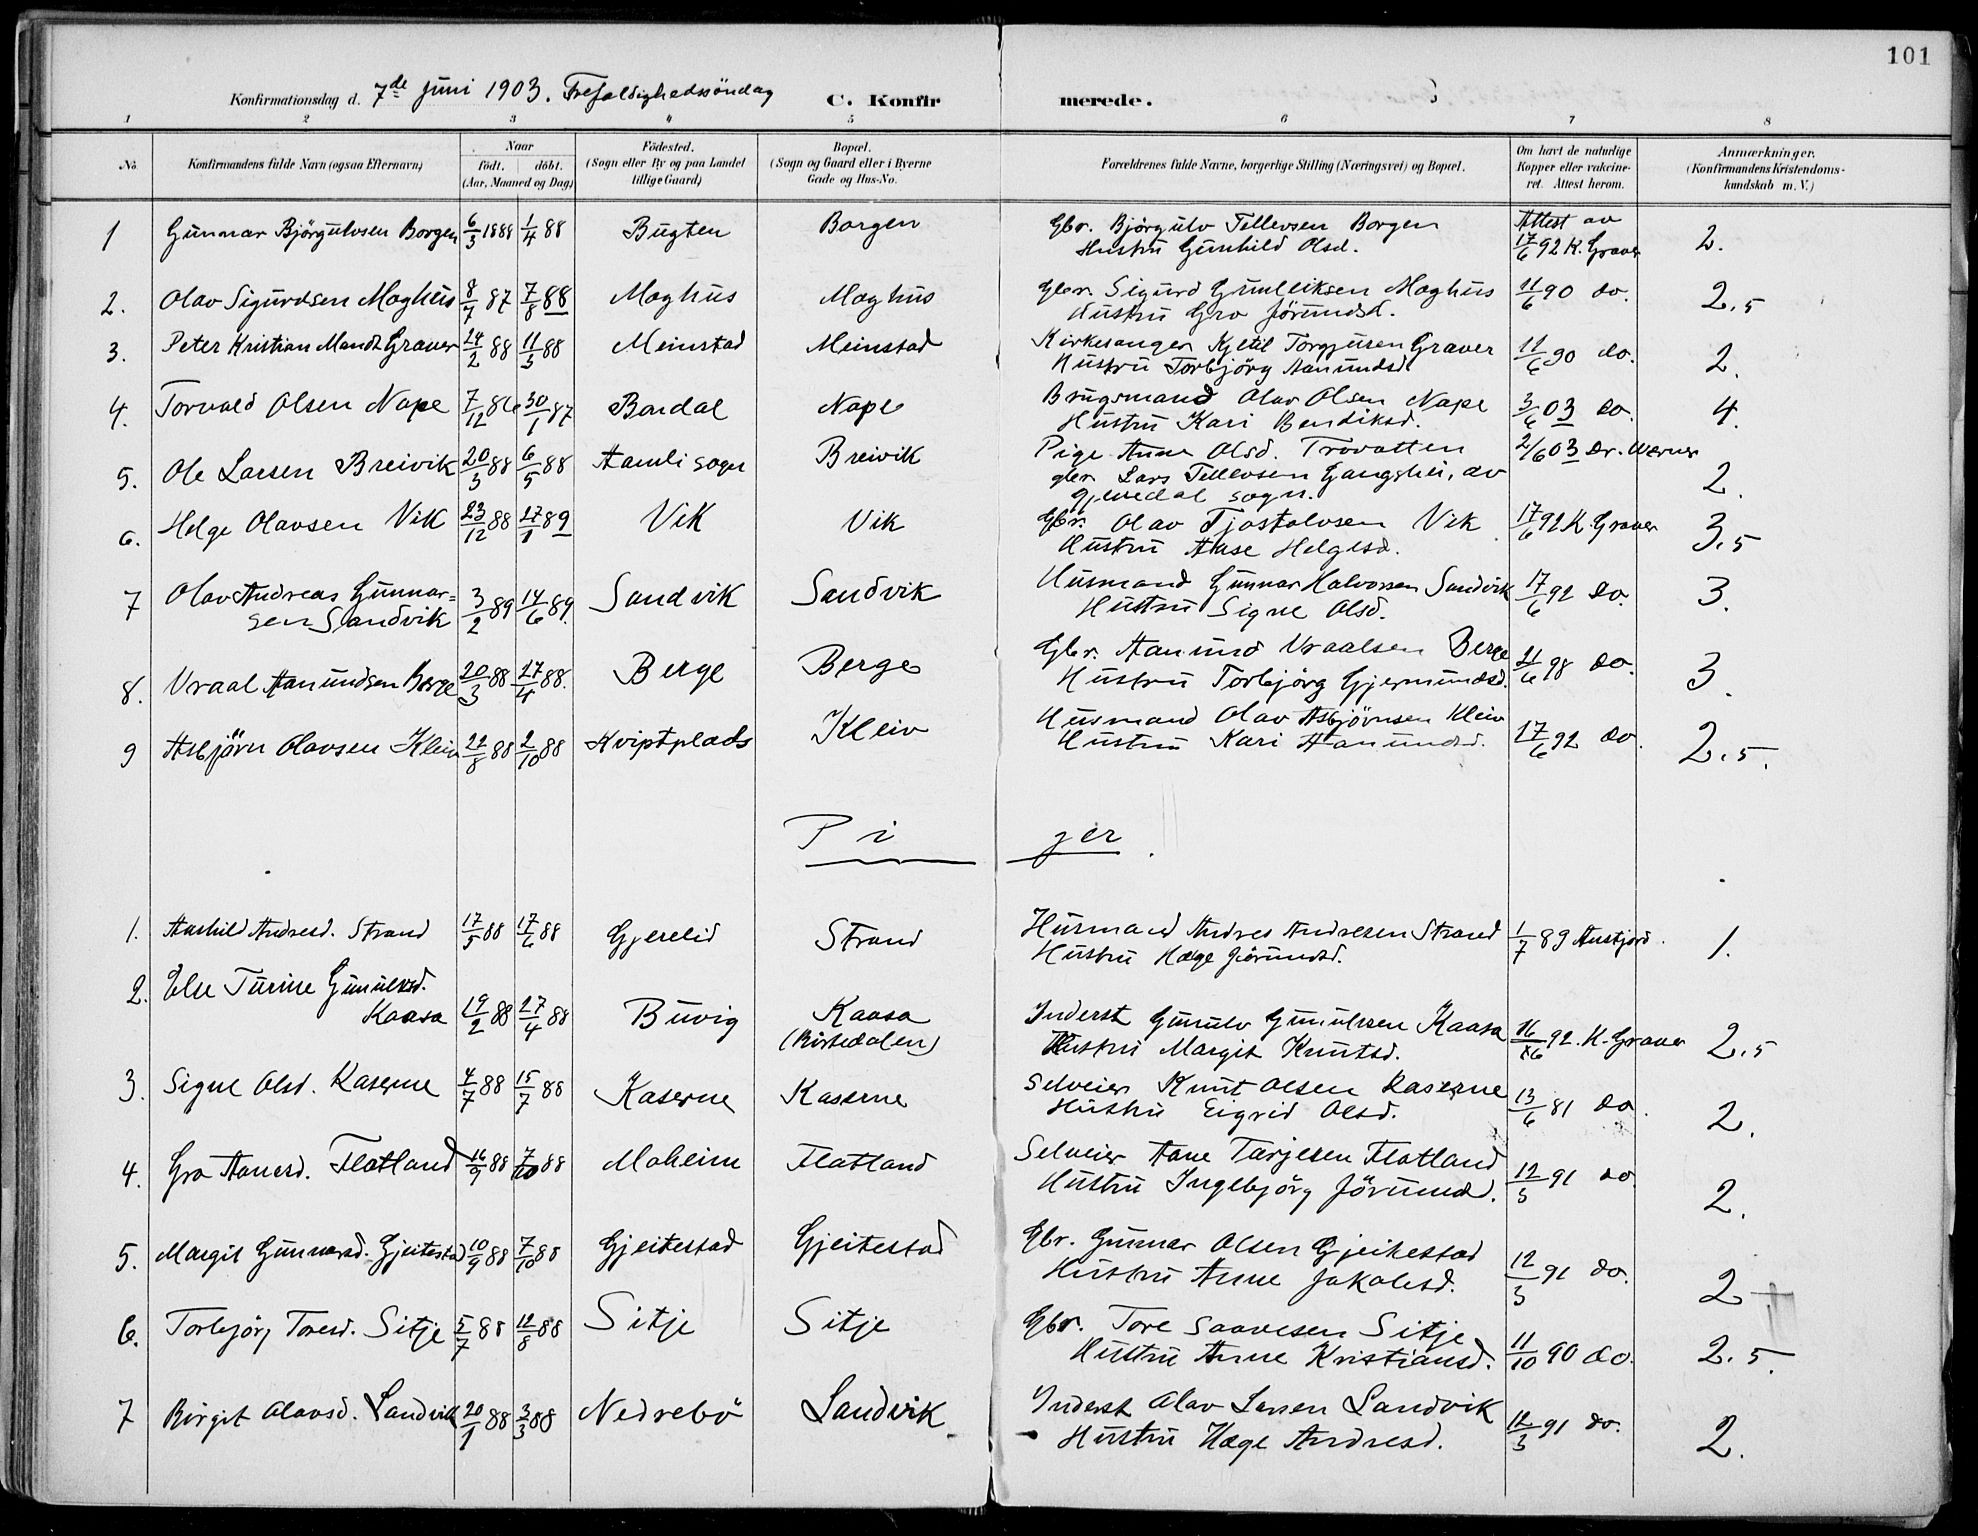 101
Konfirmationsdag d. 7de juni 1903. Trefoldighedssöndag C. Konfirmerede.
1 2 3 4 5 6 7 8
No. Konfirmandens fulde Navn (ogsaa Efternavn) Naar födt. döbt. (Aar, Maaned og Dag) Födested. (Sogn eller By og paa Landet tillige Gaard) Bopæl. (Sogn og Gaard eller i Byerne Gade og Hus-No. Forældrenes fulde Navne, borgerlige Stilling (Næringsvei) og Bopæl. Om havt de naturlige Kopper eller vakcineret. Attest herom. Anmærkninger. (Konfirmandens Kristendomskundskab m. V.)
1 Gunnar Björgulvsen Borgen 6/3 1888 1/4 88 Bugten Borgen Gbr. Bjørgulv Tellevsen Borgen Attest av 17/6 92 K. Graver 2.
Hustru Gunhild Olsd.
2. Olav Sigurdsen Moghus 8/7 87 7/8 88 Moghus Moghus Gbr. Sigurd Gunleiksen Moghus 11/6 90 do. 2.5
Hustru Gro Jörundsd.
3. Peter Kristian Mandt Graver 24/2 88 11/3 88 Meinstad Meinstad Kirkesanger Kjetil Torgjusen Graver 11/6 90 do. 2.
Hustru Torbjörg Aanundsd.
4. Torvald Olsen Nape 7/12 86 30/1 87 Bordal Nape Brugsmand Olav Olsen Nape 3/6 03 do. 4.
Hustru Kari Bendiksd.
5. Ole Larsen Breivik 20/3 88 6/5 88 Aamli sogn Breivik Pige Anne Olsd. Trovatten 2/6 03 Dr. Werner 2.
Lars Tellevsen Gangshei, av
Gjevedal sogn.
6. Helge Olavsen Vik 23/12 88 27/1 89 Vik Vik Gbr. Olav Tjostolvsen Vik 17/6 92 K. Graver 3.5
Hustru Aase Helgesd.
7 Olav Andreas Gunnar= 3/2 89 14/6 89. Sandvik Sandvik Husmand Gunnar Halvorsen Sandvik 17/6 92 do. 3.
sen Sandvik Hustru Signe Olsd.
8. Vraal Aanundsen Berge 20/3 88 27/4 88. Berge Berge Gbr. Aanund Vraalsen Berge 21/6 98 do. 3.
Hustru Torbjörg Gjermundsd.
9 Asbjörn Olavsen Kleiv 22/8 88 2/10 88 Kviptplads Kleiv Husmand Olav Asbjörnsen Kleiv 17/6 92 do. 2.5.
Hustru Kari Aanundsd.
Piger.
1. Aashild Andresd. Strand 17/5 88 17/6 88 Gjerelid Strand Husmand Andres Andresen Strand 1/7 89 Austjord. 1.
Hustru Hæge Jörundsd.
2. Else Turine Gunulvsd.
Kaasa 19/2 88 27/4 88 Buvig Kaasa Inderst Gunulv Gunulvsen Kaasa 16/6 92. K. Graver 2.5
(Birtedalen) Hustru Margit Knutsd.
3. Signe Olsd. Kaserne 4/7 88 15/7 88 Kaserne Kaserne Selveier Knut Olsen Kaserne 13/6 81 do. 2.
Hustru Sigrid Olsd.
4. Gro Aanesd. Flatland 16/9 88 7/10 88 Moheim Flatland Selveier Aane Tarjesen Flatland 12/3 91 do. 2.
Hustru Ingebjörg Jörunds.
5. Margit Gunnarsd. Gjeitestad 10/9 88 7/10 88 Gjeitestad Gjeitestad Gbr. Gunnar Olsen Gjeitestad 12/3 91 do. 2
Hustru Anne Jakobsd.
6. Torbjörg Toresd. Sitje 5/7 88 12/8 88 Sitje Sitje Gbr. Tore Saavesen Sitje 11/10 90 do. 2.5.
Hustru Anne Kristiansd.
7 Birgit Olavsd. Sandvik 20/1 88 3/3 88 Nedrebö Sandvik Inderst Olav Larsen Sandvik 12/3 91 do. 2.
Hustru Hæge Andresd.